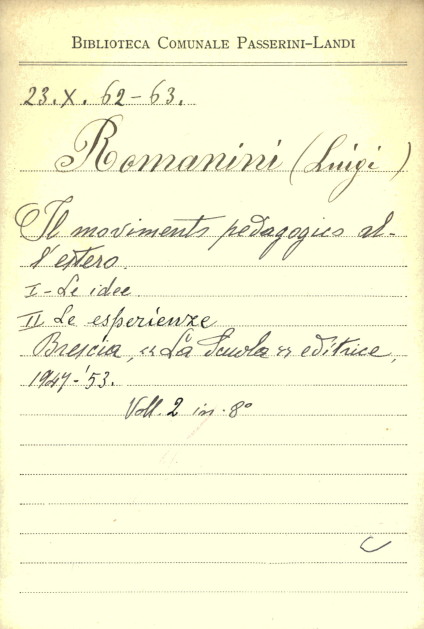 BIBLIOTECA COMUNALE PASSERINI-LANDI
23. X. 62-63.
Romanini (Luigi)
Il movimento pedagogico al-
l'estero.
I - Le idee
II Le esperienze
Brescia, "La Scuola" editrice,
1947-'53.
Voll. 2 in-8°
C